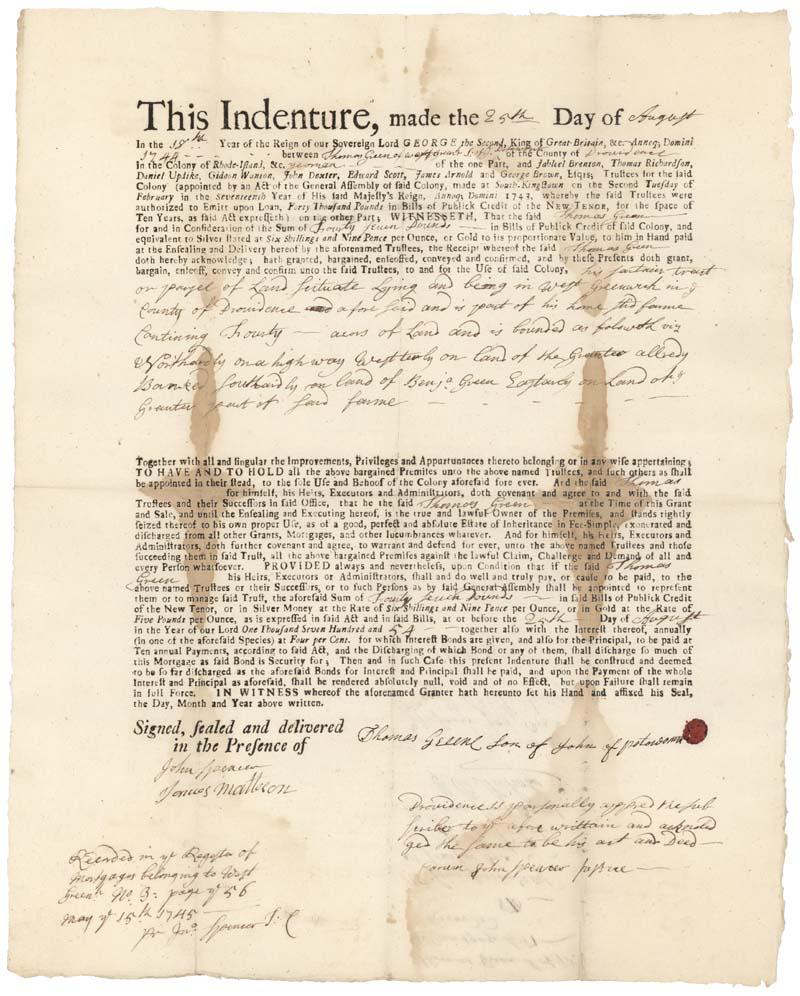 This Indenture, made the 25th Day of August
In the 18th Year of the Reign of our Sovereign Lord GEORGE the Second, King of Great-Britain, &c. Annoq; Domini
1744 - - - between Thomas Green of West Greenwich of the County of Providence
in the Colony of Rhode-Island, &c. yeoman of the one Part, and Jahleel Brenton, Thomas Richardson,
Daniel Updike, Gideon Wanton, John Dexter, Edward Scott, James Arnold and George Brown, Esqrs; Trustees for the said
Colony (appointed by an Act of the General Assembly of said Colony, made at South-Kingstown on the Second Tuesday of
February in the Seventeenth Year of His said Majesty's Reign, Annoq; Domini 1743, whereby the said Trustees were
authorized to Emitt upon Loan, Forty Thousand Pounds in Bills of Publick Credit of the NEW TENOR, for the space of
Ten Years, as said Act expresseth) on the other Part; WITNESSETH, That the said Thomas Green
for and in Consideration of the Sum of Fourty seven Pounds in Bills of Publick Credit of said Colony, and
equivalent to Silver stated at Six Shillings and Nine Pence per Ounce, or Gold to its proportionate Value, to him in Hand paid
at the Ensealing and Delivery hereof by the aforenamed Trustees, the Receipt whereof the said Thomas Green
doth hereby acknowledge; hath granted, bargained, enfeoffed, conveyed and confirmed, and by these Presents doth grant,
bargain, enfeoff, convey and confirm unto the said Trustees, to and for the Use of said Colony, his sartain tract
or parsel of Land scituate Lying and being in West Greenwich in ye
County of Providence afore said and is part of his home sted farme
Contining Fourty — acors of Land and is bounded as foloweth viz
Northardly on a high way Westterly on land of the Granter allredy
Southardly on land of Benja Green Easterly on Land of ye
Granter part of said farme - - - - -
Together with all and singular the Improvements, Privileges and Appurtunances thereto belonging or in any wise appertaining;
TO HAVE AND TO HOLD all the above bargained Premises unto the above named Trustees, and such others as shall
be appointed in their stead, to the sole Use and Behoof of the Colony aforesaid fore ever. And the said Thomas
for himself, his Heirs, Executors and Administrators, doth covenant and agree to and with the said
Trustees and their Successors in said Office, that he the said Thomas Green at the Time of this Grant
and Sale, and until the Ensealing and Executing hereof, is the true and lawful Owner of the Premises, and stands rightly
seized thereof to his own proper Use, as of a good, perfect and absolute Estate of Inheritance in Fee-Simple, exonerated and
discharged from all other Grants, Mortgages, and other Incumbrances whatever. And for himself, his Heirs, Executors and
Administrators, doth further covenant and agree, to warrant and defend for ever, unto the above named Trustees and those
succeeding them in said Trust, all the above bargained Premises against the lawful Claim, Challenge and Demand of all and
every Person whatsoever. PROVIDED always and nevertheless, upon Condition that if the said Thomas
Green his Heirs, Executors or Administrators, shall and do well and truly pay, or cause to be paid, to the
above named Trustees or their Successors, or to such Persons as by said General Assembly shall be appointed to represent
them or to manage said Trust, the aforesaid Sum of Fourty seven Pounds in said Bills of Publick Credit
of the New Tenor, or in Silver Money at the Rate of Six Shillings and Nine Pence per Ounce, or in Gold at the Rate of
Five Pounds per Ounce, as is expressed in said Act and in said Bills, at or before the 25th Day of August
in the Year of our Lord One Thousand Seven Hundred and 54 — together also with the Interest thereof, annually
(in one of the aforesaid Species) at Four per Cent. for which Interest Bonds are given, and also for the Principal, to be paid at
Ten annual Payments, according to said Act, and the Discharging of which Bond or any of them, shall discharge so much of
this Mortgage as said Bond is Security for; Then and in such Case this present Indenture shall be construed and deemed
to be so far discharged as the aforesaid Bonds for Interest and Principal shall be paid, and upon the Payment of the whole
Interest and Principal as aforesaid, shall be rendered absolutely null, void and of no Effect, but upon Failure shall remain
in full Force. IN WITNESS whereof the aforenamed Granter hath hereunto set his Hand and affixed his Seal,
the Day, Month and Year above written.
Signed, sealed and delivered
in the Presence of
Thomas Greene Son of John of potowomut
John Spencer
James Matteson
Providence Ss personally appred ye sub
scriber to ye afore writtain and acknoled
ged the same to be his act and Deed —
Corum John Spencer Justice —
Recorded in ye Regester of
Mortgages belonging to West
Greenh No 3: page ye 56
May ye 15th 1745
pr Jno Spencer